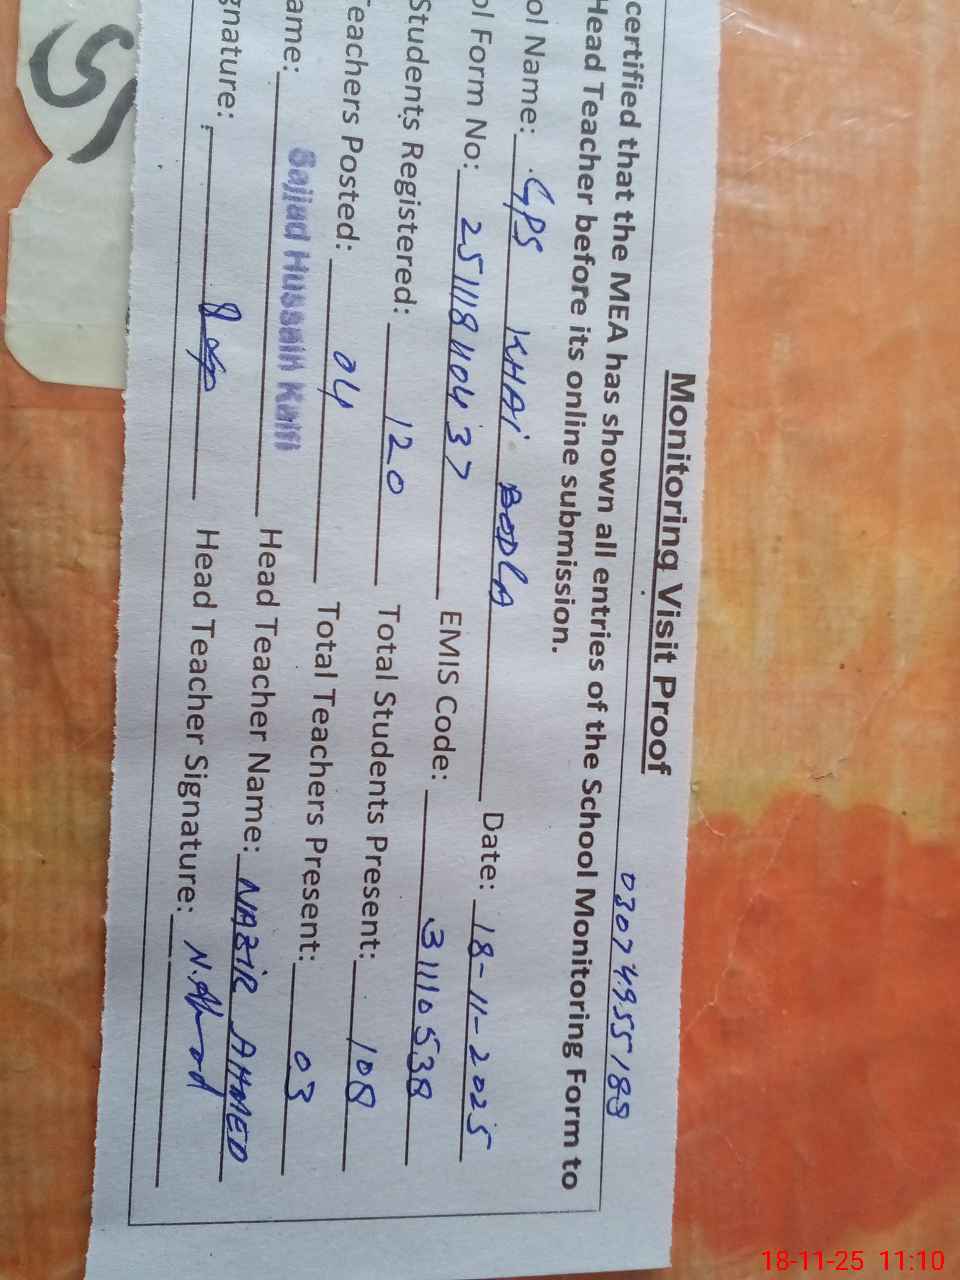 Monitoring Visit Proof
03074955188
certified that the MEA has shown all entries of the School Monitoring Form to
Head Teacher before its online submission.
ol Name: GPS KHAI BODLA Date: 18-11-2025
ol Form No: 251118440437 EMIS Code: 31110538
Students Registered: 120 Total Students Present: 108
Teachers Posted: 04 Total Teachers Present: 03
ame: Sajjad Hussain Head Teacher Name: NAZIR AHMED
gnature: Head Teacher Signature: N. Ahmad
18-11-25 11:10